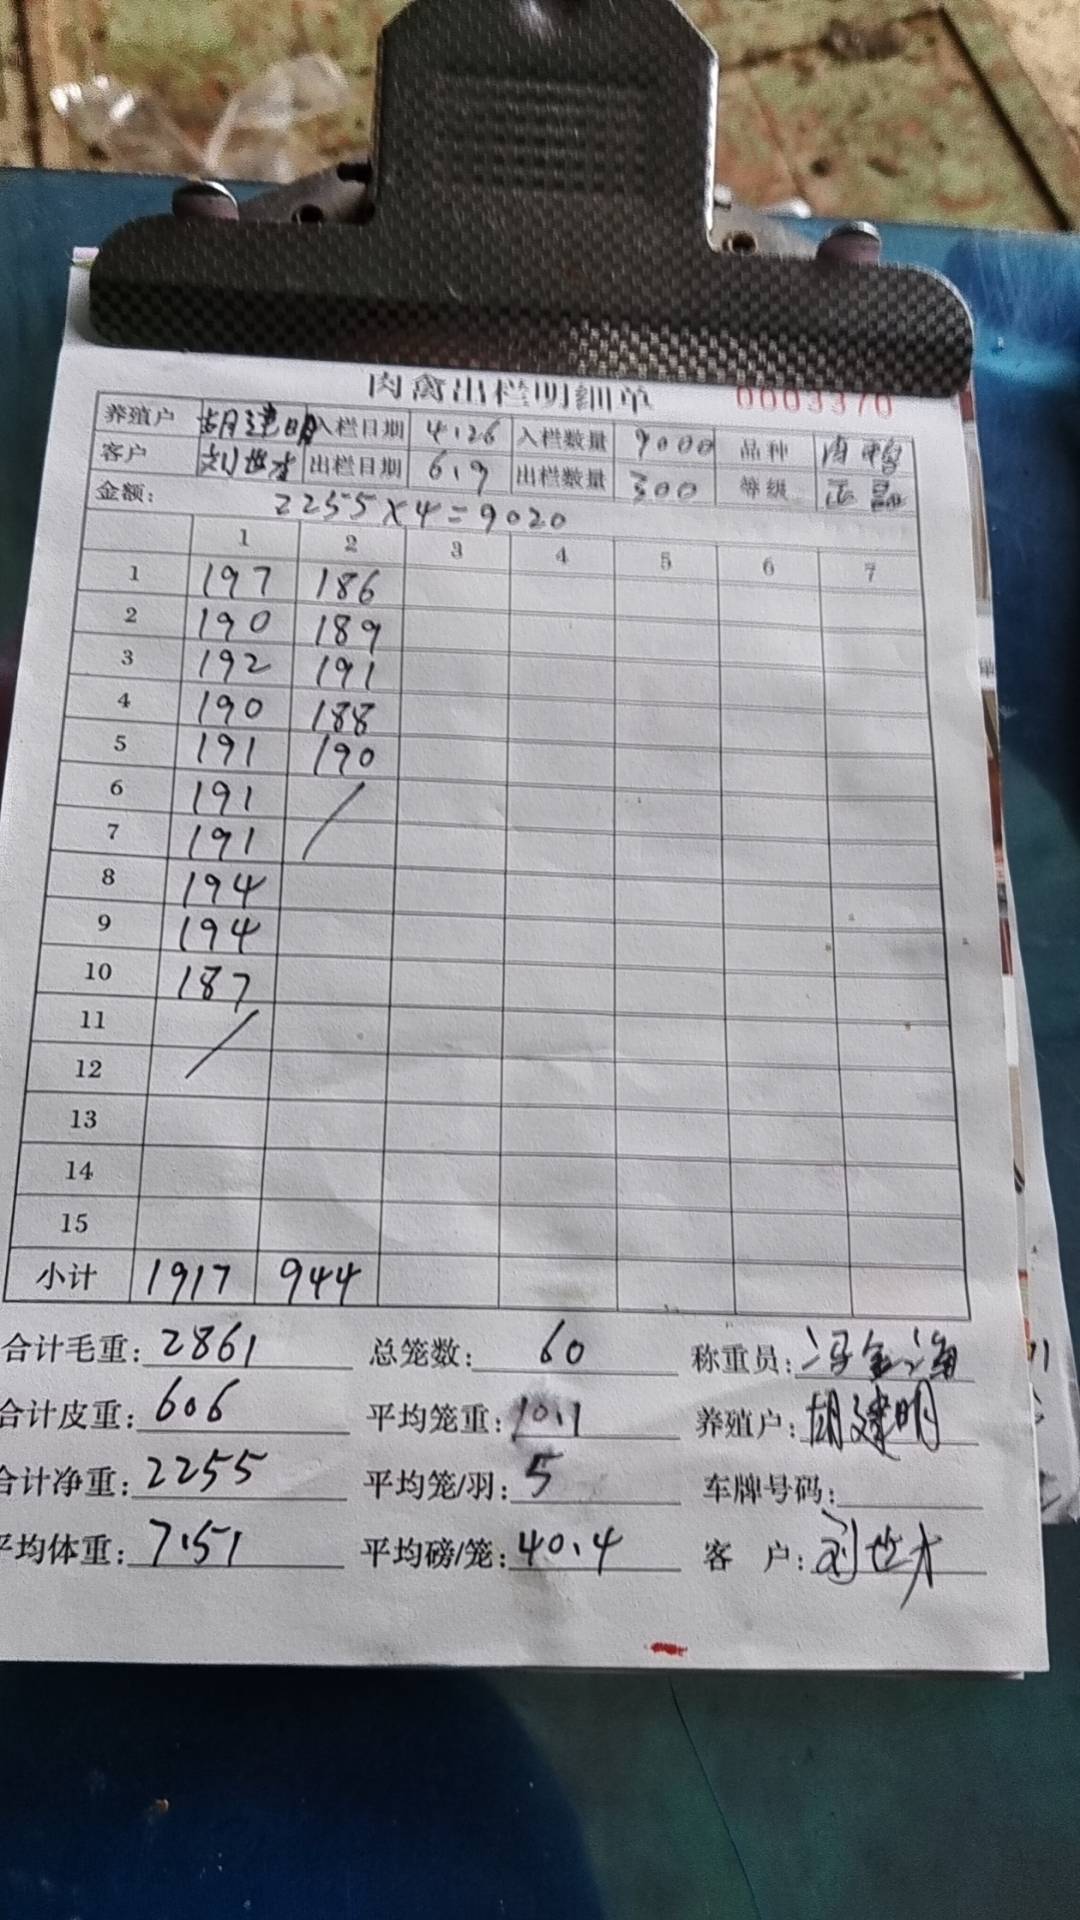 肉禽出栏明细单 0003370
养殖户 胡建明 入栏日期 4.26 入栏数量 9000 品种
客户 刘世才 出栏日期 6.9 出栏数量 300 等级 正品
金额: 2255×4=9020
1 2 3 4 5 6 7
1 197 186
2 190 189
3 192 191
4 190 188
5 191 190
6 191 /
7 191
8 194
9 194
10 187
11 /
12
13
14
15
小计 1917 944
合计毛重: 2861 总笼数: 60 称重员:
合计皮重: 606 平均笼重: 10.1 养殖户: 胡建明
合计净重: 2255 平均笼/羽: 5 车牌号码:
平均体重: 7.51 平均磅/笼: 40.4 客 户: 刘世才